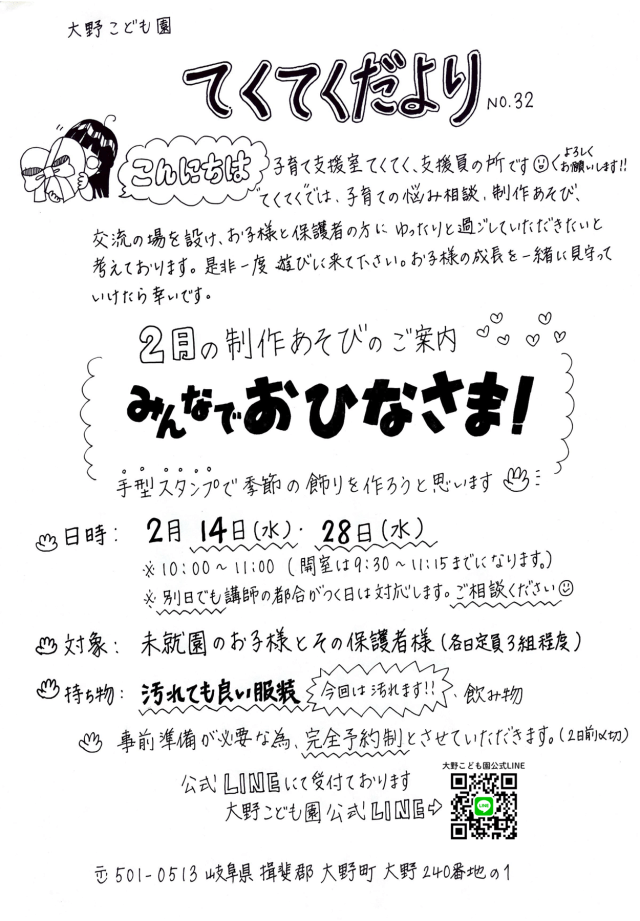 大野こども園
てくてくだより NO.32
こんにちは 子育て支援室てくてく、支援員の所です よろしくお願いします!!
"てくてく"では、子育ての悩み相談、制作あそび、
交流の場を設け、お子様と保護者の方に ゆったりと過ごしていただきたいと
考えております。是非一度 遊びに来て下さい。お子様の成長を一緒に見守って
いけたら幸いです。
2月の制作あそびのご案内
みんなでおひなさま!
手型スタンプで季節の飾りを作ろうと思います
日時: 2月 14日(水)・28日(水)
※10:00~11:00 (開室は9:30~11:15までになります。)
※別日でも講師の都合がつく日は対応します。ご相談ください
対象: 未就園のお子様とその保護者様(各日定員3組程度)
持ち物: 汚れても良い服装 今回は汚れます!! 、飲み物
事前準備が必要な為、完全予約制とさせていただきます。(2日前〆切)
公式LINEにて受付ております
大野こども園公式LINE⇨
大野こども園公式LINE
LINE
〒501-0513 岐阜県 揖斐郡 大野町 大野240番地の1